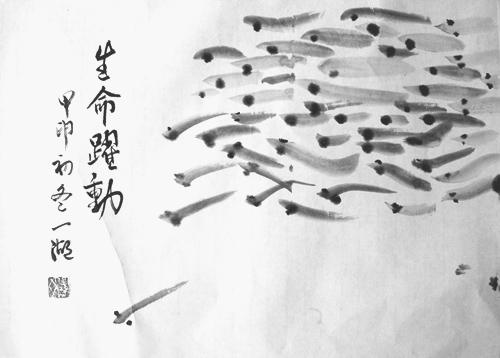 生命躍動
甲申初冬一湖